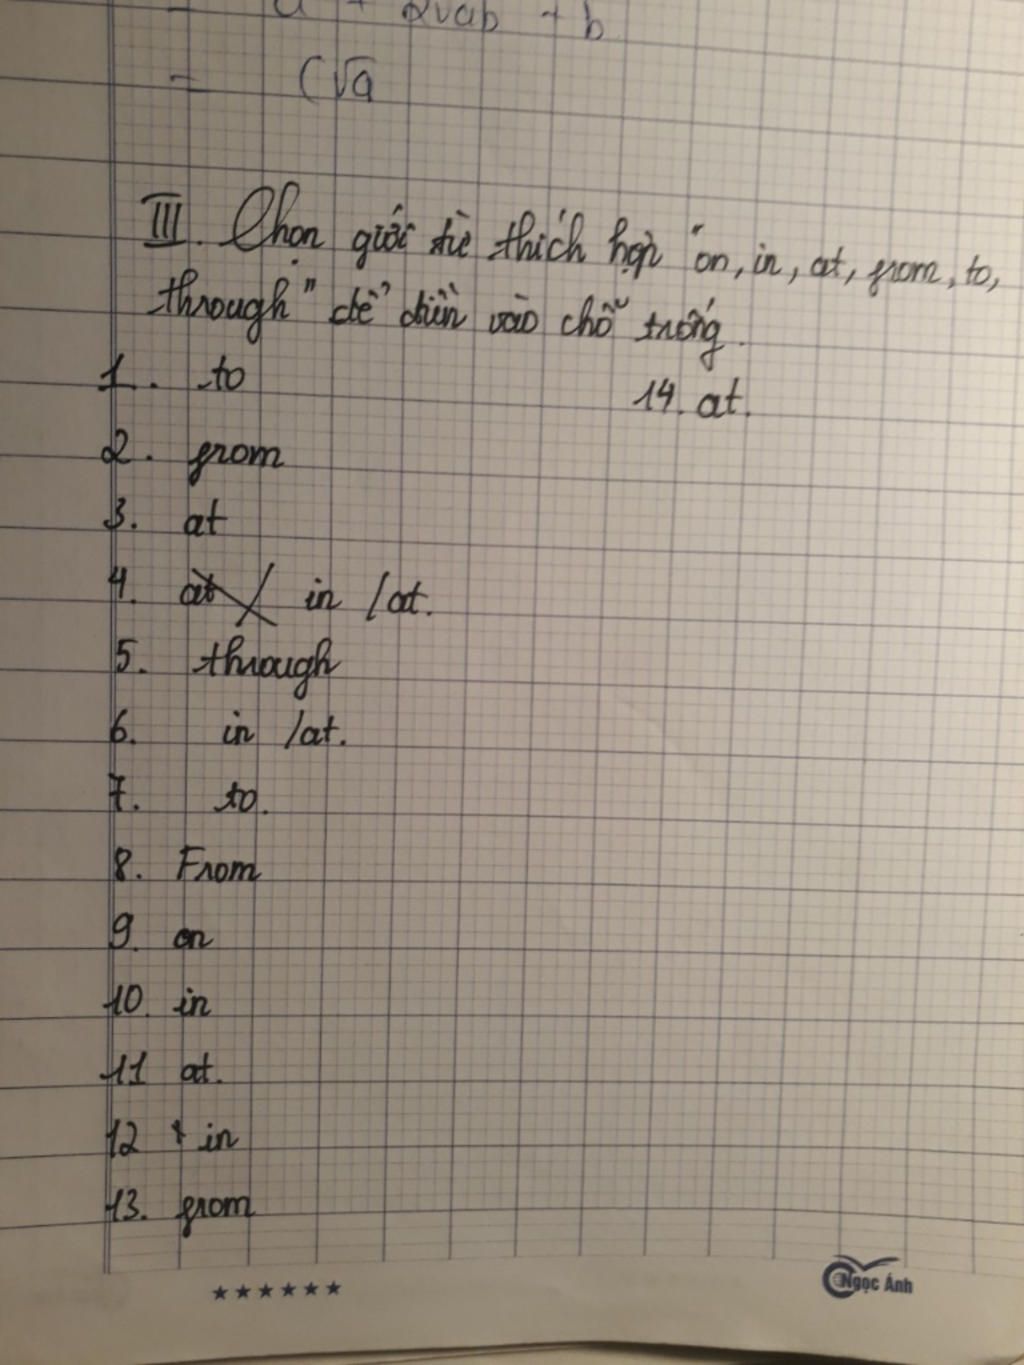 = a + 2√ab + b
= (√a
III. Chọn giới từ thích hợp "on, in, at, from, to,
through" để điền vào chỗ trống.
1. to
14. at.
2. from
3. at
4. at / in / at.
5. through
6. in / at.
7. to.
8. From
9. on
10. in
11 at.
12 in
13. from
★★★★★★
Ngọc Ánh